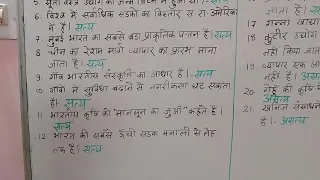 5. सूती वस्त्र उद्योग का जन्म ब्रिटेन में हुआ था। सत्य
6 विश्व में सर्वाधिक सड़कों का विस्तार स. रा. अमेरिका
में है। सत्य
7 मुंबई भारत का सबसे बड़ा प्राकृतिक पत्तन है। सत्य
8 चीन का रेशम मार्ग व्यापार का प्रारंभ माना
जाता है। सत्य
9 गाँव भारतीय संस्कृति का आधार है। सत्य
10 गाँवों में सुविधा बढ़ाने से नगरीकरण घट सकता
है। सत्य
11 भारतीय कृषि को "मानसून का जुआ" कहते हैं।
सत्य
12 भारत की सबसे ऊँची सड़क मनाली से लेह
तक है। सत्य
17 गन्ना
18 कुटीर उद्योग
नहीं किया जात
19 व्यापार एक
नहीं है। असत्य
20 गेहूँ की कृषि में
असत्य
21 खनिज संसाधन
है।- असत्य